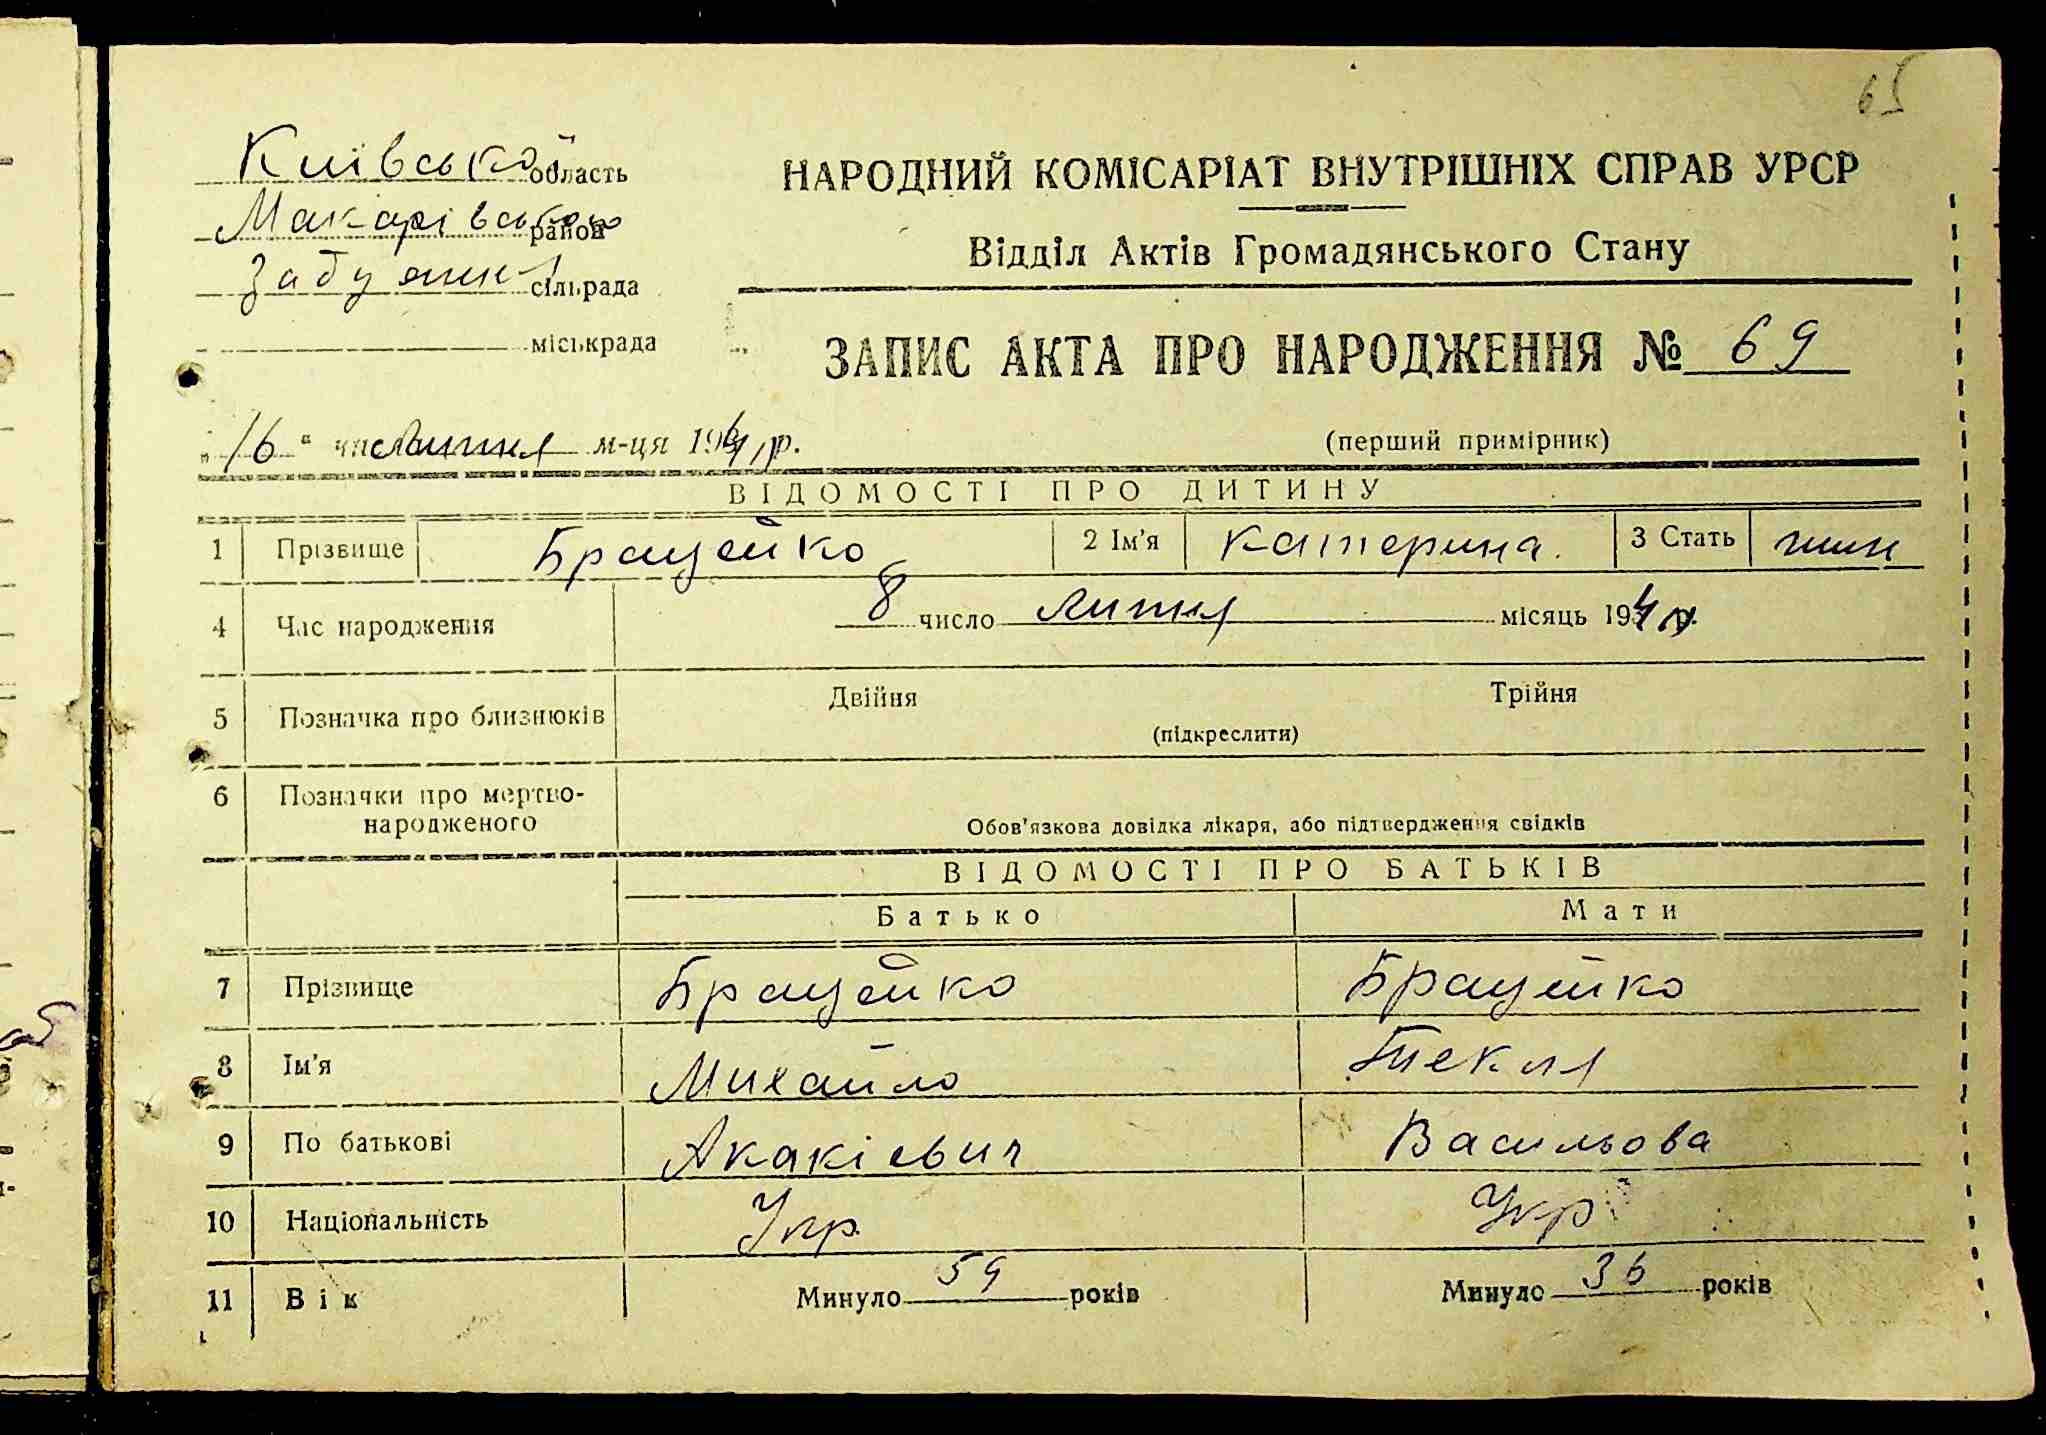 65
Київської область
НАРОДНИЙ КОМІСАРІАТ ВНУТРІШНІХ СПРАВ УРСР
Макарівського район
Відділ Актів Громадянського Стану
Забуяння сільрада
міськрада
ЗАПИС АКТА ПРО НАРОДЖЕННЯ № 69
„16“ числа липня м-ця 1941 р.
(перший примірник)
ВІДОМОСТІ ПРО ДИТИНУ
1 Прізвище Брацейко 2 Ім'я Катерина. 3 Стать жін
4 Час народження 8 число липня місяць 1941 р.
5 Позначка про близнюків Двійня Трійня
(підкреслити)
6 Позначки про мертво-
народженого Обов'язкова довідка лікаря, або підтвердження свідків
ВІДОМОСТІ ПРО БАТЬКІВ
Батько Мати
7 Прізвище Брацейко Брацейко
8 Ім'я Михайло Текля
9 По батькові Акакієвич Васильова
10 Національність Укр. Укр
11 Вік Минуло 59 років Минуло 36 років